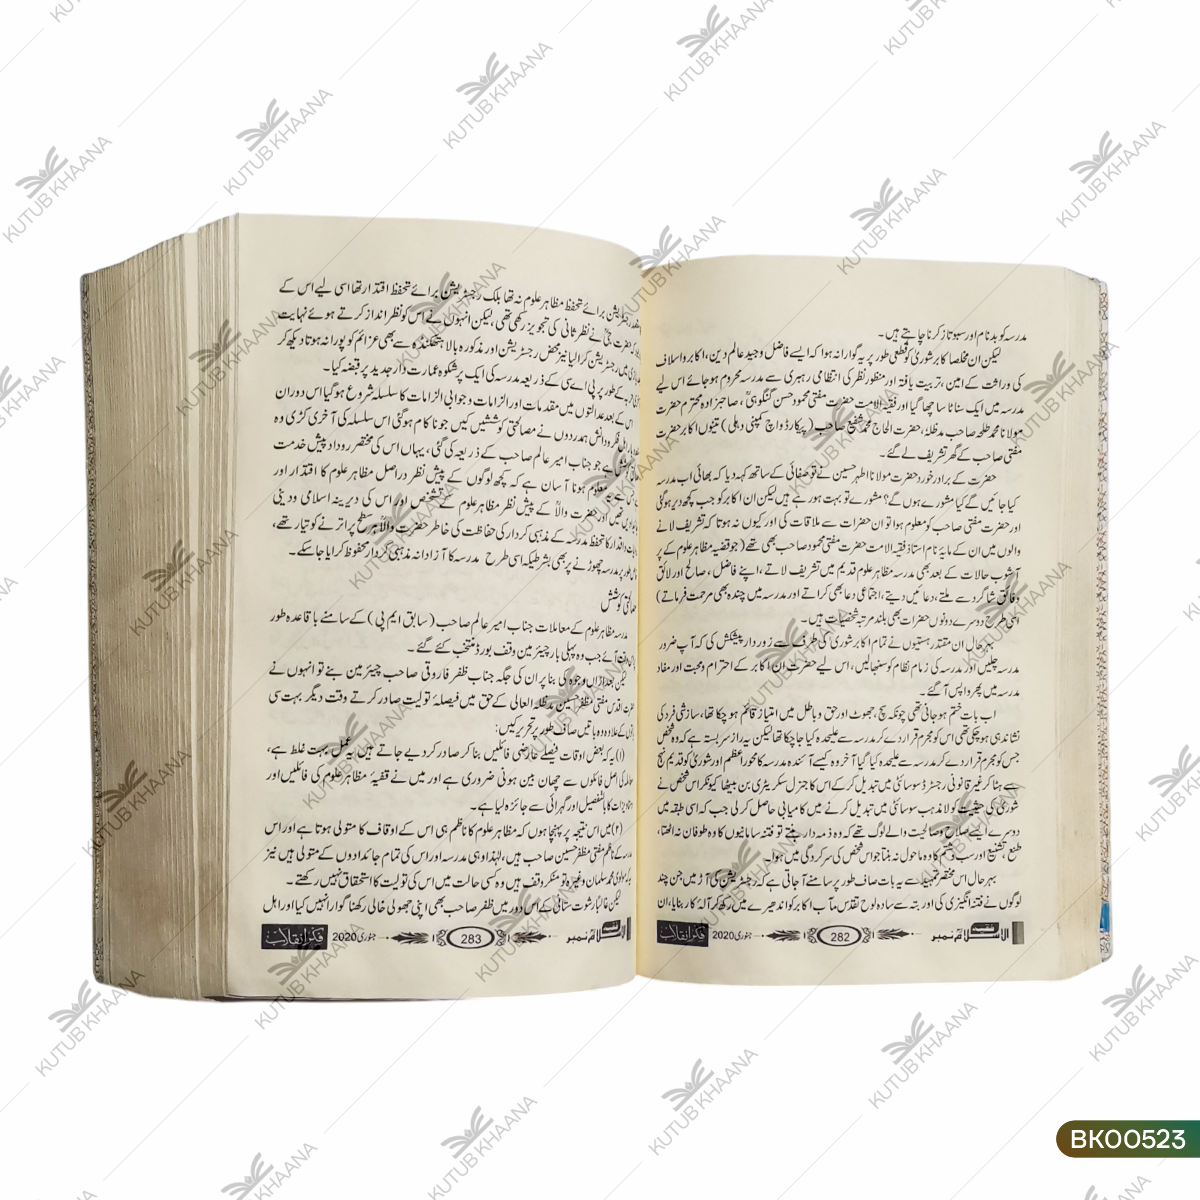 مدرسہ کو بدنام اور سبوتاژ کرنا چاہتے ہیں۔
لیکن ان مخلص اکابر شوری کو قطعی طور پر یہ گوارا نہ ہوا کہ ایسے فاضل و جید عالم دین، اکابر و اسلاف
کی وراثت کے امین، تربیت یافتہ اور منظور نظر کی انتظامی رہبری سے مدرسہ محروم ہو جائے اس لیے
مدرسہ میں ایک سناٹا سا چھا گیا اور فقیہ الامت حضرت مفتی محمود حسن گنگوہیؒ، صاحبزادہ محترم حضرت
مولانا محمد طلحہ صاحب مدظلہ، حضرت الحاج محمد شفیع صاحب (پیکارڈ واچ کمپنی دہلی) تینوں اکابر حضرت
مفتی صاحب کے گھر تشریف لے گئے۔
حضرت کے برادر خورد حضرت مولانا اطہر حسین نے تو صفائی کے ساتھ کہہ دیا کہ بھائی اب مدرسہ
کیا جائیں گے کیا مشورے ہوں گے؟ مشورے تو بہت ہو رہے ہیں لیکن ان اکابر کو جب کچھ دیر ہو گئی
اور حضرت مفتی صاحب کو معلوم ہوا تو ان حضرات سے ملاقات کی اور کیوں نہ ہوتا کہ تشریف لانے
والوں میں ان کے مایۂ نام استاذ فقیہ الامت حضرت مفتی محمود صاحب بھی تھے (جو قضیہ مظاہر علوم کے پر
آشوب حالات کے بعد بھی مدرسہ مظاہر علوم قدیم میں تشریف لاتے، اپنے فاضل، صالح اور لائق
و فائق شاگرد سے ملتے، دعائیں دیتے، اجتماعی دعا بھی کراتے اور مدرسہ میں چندہ بھی مرحمت فرماتے)
اسی طرح دوسرے دونوں حضرات بھی بلند مرتبہ شخصیات ہیں۔
بہر حال ان مقتدر ہستیوں نے تمام اکابر شوری کی طرف سے زوردار پیشکش کی کہ آپ ضرور
مدرسہ چلیں اور مدرسہ کی زمام نظام کو سنبھالیں، اس لیے حضرت ان اکابر کے احترام و محبت اور مفاد
مدرسہ میں پھر واپس آ گئے۔
اب بات ختم ہو جانی تھی چونکہ سچ، جھوٹ اور حق و باطل میں امتیاز قائم ہو چکا تھا، سازشی فرد کی
نشاندہی ہو چکی تھی اس کو مجرم قرار دے کر مدرسہ سے علیحدہ کیا جا چکا تھا لیکن یہ راز سربستہ ہے کہ وہ شخص
جس کو مجرم قرار دے کر مدرسہ سے علیحدہ کیا گیا آخر وہ کیسے آئندہ مدرسہ کا محور اعظم اور شوریٰ کو قدیم نہج
سے ہٹا کر غیر قانونی رجسٹرڈ سوسائٹی میں تبدیل کر کے اس کا جنرل سکریٹری بن بیٹھا کیونکر اس شخص نے
شوریٰ کی حیثیت کو لا مذہب سوسائٹی میں تبدیل کرنے میں کامیابی حاصل کر لی جب کہ اسی طبقہ میں
دوسرے ایسے صلاح و صالحیت والے لوگ تھے کہ وہ ذمہ دار بنتے تو فتنہ سامانیوں کا وہ طوفان نہ اٹھتا،
طعن، تشنیع اور سب و شتم کا وہ ماحول نہ بنتا جو اس شخص کی سرکردگی میں ہوا۔
بہر حال اس مختصر تمہید سے یہ بات صاف طور پر سامنے آ جاتی ہے کہ رجسٹریشن کی آڑ میں جن چند
لوگوں نے فتنہ انگیزی کی اور بنہ سے سادہ لوح تقدس مآب اکابر کو اندھیرے میں رکھ کر آلۂ کار بنایا، ان
فقیہ الاسلامؒ نمبر 282 جنوری 2020 فکر انقلاب
رجسٹریشن برائے تحفظ مظاہر علوم نہ تھا بلکہ رجسٹریشن برائے تحفظ اقتدار تھا اسی لیے اس کے
حضرت جیؒ نے نظر ثانی کی تجویز رکھی تھی، لیکن انہوں نے اس کو نظر انداز کرتے ہوئے نہایت
میں رجسٹریشن کرا لیا نیز محض رجسٹریشن اور مذکورہ بالا ہتھکنڈہ سے بھی عزائم کو پورا نہ ہوتا دیکھ کر
کے طور پر پی اے سی کے ذریعہ مدرسہ کی ایک پرشکوہ عمارت دار جدید پر قبضہ کیا۔
اس کے بعد عدالتوں میں مقدمات اور الزامات و جوابی الزامات کا سلسلہ شروع ہو گیا اس دوران
فکر و دانش ہمدردوں نے مصالحتی کوششیں کیں جو ناکام ہو گئی اس سلسلہ کی آخری کڑی وہ
ہے جو جناب امیر عالم صاحب کے ذریعہ کی گئی، یہاں اس کی مختصر روداد پیش خدمت
معلوم ہونا آسان ہے کہ کچھ لوگوں کے پیش نظر دراصل مظاہر علوم کا اقتدار اور
تھیں اور حضرت والاؒ کے پیش نظر مظاہر علوم کے تشخص اور اس کی دیرینہ اسلامی و دینی
اقدار کا تحفظ مدرسہ کے مذہبی کردار کی حفاظت کی خاطر حضرت والاؒ ہر سطح پر اترنے کو تیار تھے،
طور پر مدرسہ چھوڑنے پر بھی بشرطیکہ اسی طرح مدرسہ کا آزادانہ مذہبی کردار محفوظ کرایا جا سکے۔
مصالحتی کوشش
مدرسہ مظاہر علوم کے معاملات جناب امیر عالم صاحب (سابق ایم پی) کے سامنے باقاعدہ طور
آئے جب وہ پہلی بار چیئرمین وقف بورڈ منتخب کئے گئے۔
لیکن بعد ازاں وجوہ کی بنا پر ان کی جگہ جناب ظفر فاروقی صاحب چیئرمین بنے تو انہوں نے
حضرت اقدس مفتی مظفر حسین مدظلہ العالی کے حق میں فیصلۂ تولیت صادر کرتے وقت دیگر بہت سی
باتوں کے علاوہ دو باتیں صاف طور پر تحریر کیں:
(۱) یہ کہ بعض اوقات فیصلے عارضی فائلیں بنا کر صادر کر دیے جاتے ہیں یہ عمل بہت غلط ہے،
معاملہ کی اصل فائلوں سے چھان بین ہونی ضروری ہے اور میں نے قضیۂ مظاہر علوم کی فائلیں اور
دستاویزات کا بالتفصیل اور گہرائی سے جائزہ لیا ہے۔
(۲) میں اس نتیجہ پر پہنچا ہوں کہ مظاہر علوم کا ناظم ہی اس کے اوقاف کا متولی ہوتا ہے اور اس
مدرسہ کے ناظم مفتی مظفر حسین صاحب ہیں، لہٰذا وہی مدرسہ اور اس کی تمام جائدادوں کے متولی ہیں نیز
یہ کہ مولوی محمد سلمان وغیرہ تو منکر وقف ہیں وہ کسی حالت میں اس کی تولیت کا استحقاق نہیں رکھتے۔
لیکن غالباً رشوت ستانی کے اس دور میں ظفر صاحب بھی اپنی جھولی خالی رکھنا گوارا نہیں کیا اور اہل
فقیہ الاسلامؒ نمبر 283 جنوری 2020 فکر انقلاب
KUTUB KHAANA
BK00523